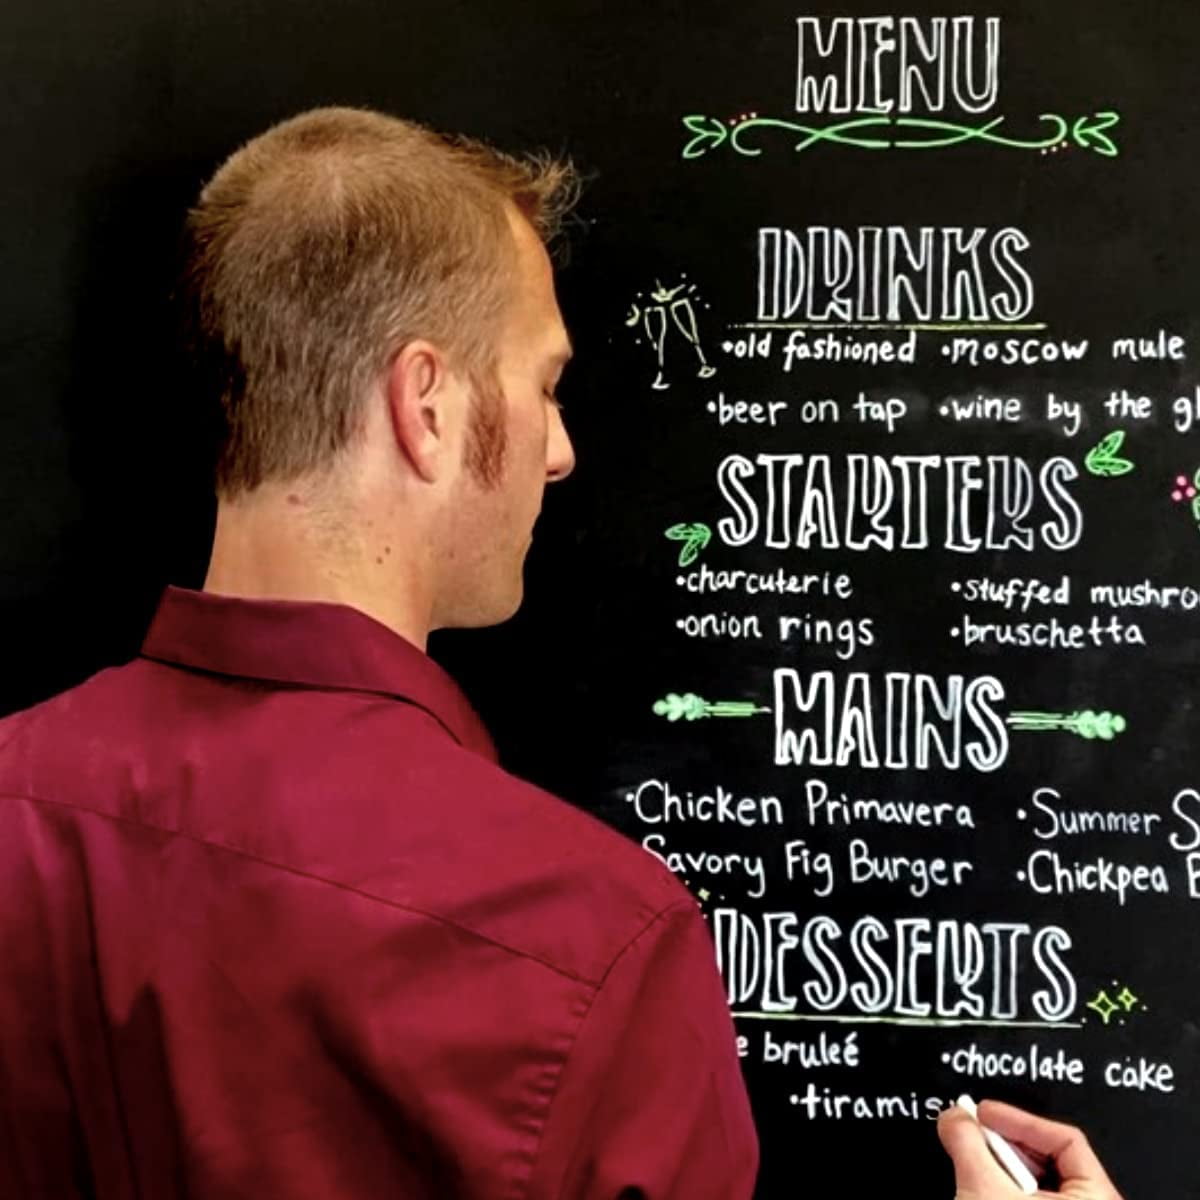 MENU
DRINKS
•old fashioned •moscow mule
•beer on tap •wine by the
STARTERS
•charcuterie •stuffed
•onion rings •bruschetta
MAINS
•Chicken Primavera •Summer
Savory Fig Burger •Chickpea
DESSERTS
bruleé •chocolate cake
•tiramis